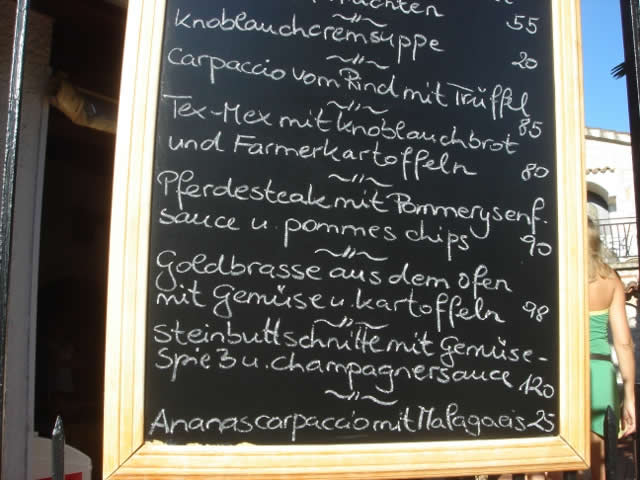 55
Knoblauchcremsuppe
20
Carpaccio vom Rind mit Trüffel
85
Tex-Mex mit Knoblauchbrot
und Farmerkartoffeln 80
Pferdesteak mit Pommerysenf-
sauce u. pommes chips 90
Goldbrasse aus dem Ofen
mit Gemüse u. Kartoffeln 98
Steinbuttschnitte mit Gemüse-
Spieß u. Champagnersauce 120
Ananascarpaccio mit Malagaeis 25